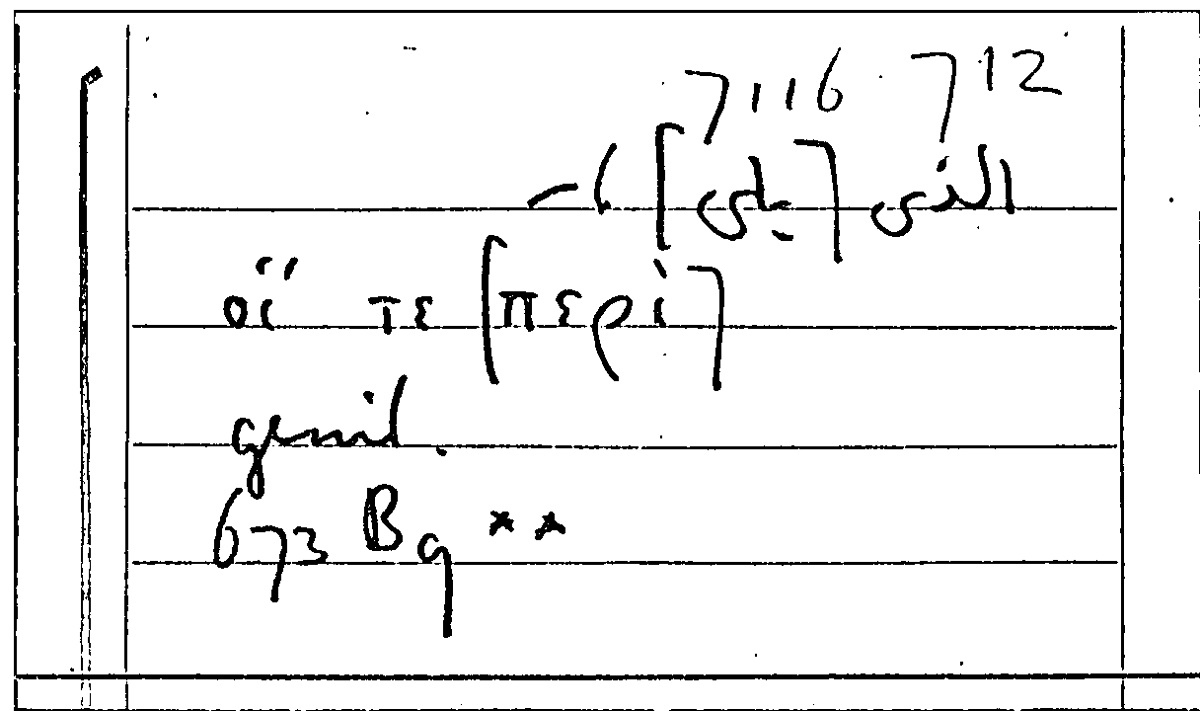 7116 712
οἵ τε [περὶ]
genit.
673 B9 **